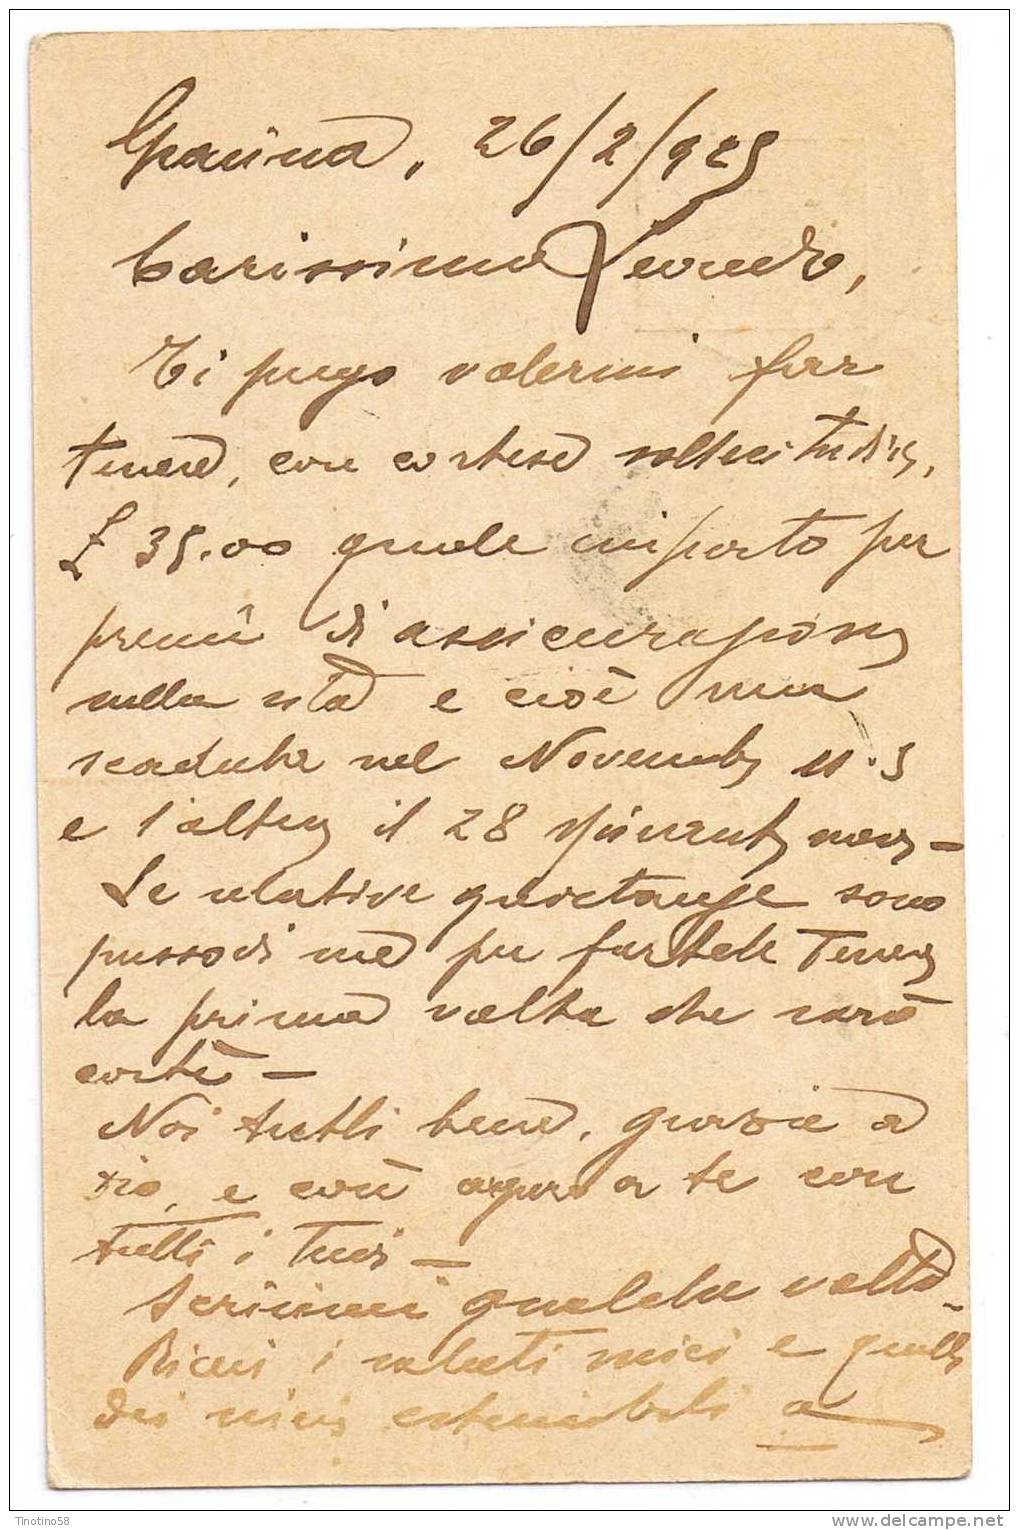 26/2/925
Carissimo
Ti prego volermi far
tenere, con cortese sollecitudine,
£ 35.00 quale importo per
premi di assicurazione
sulla vita e cioè una
scaduta nel Novembre u.s
e l'altra il 28 corrente
Le relative quietanze sono
presso di me per fartele tenere
la prima volta che sarà
Noi tutti bene, grazie a
Dio, e così auguro a te con
tutti i tuoi -
Scrivimi qualche volta -
Ricevi i saluti miei e quelli
dei miei estensibili a
Tinotino58
www.delcampe.net